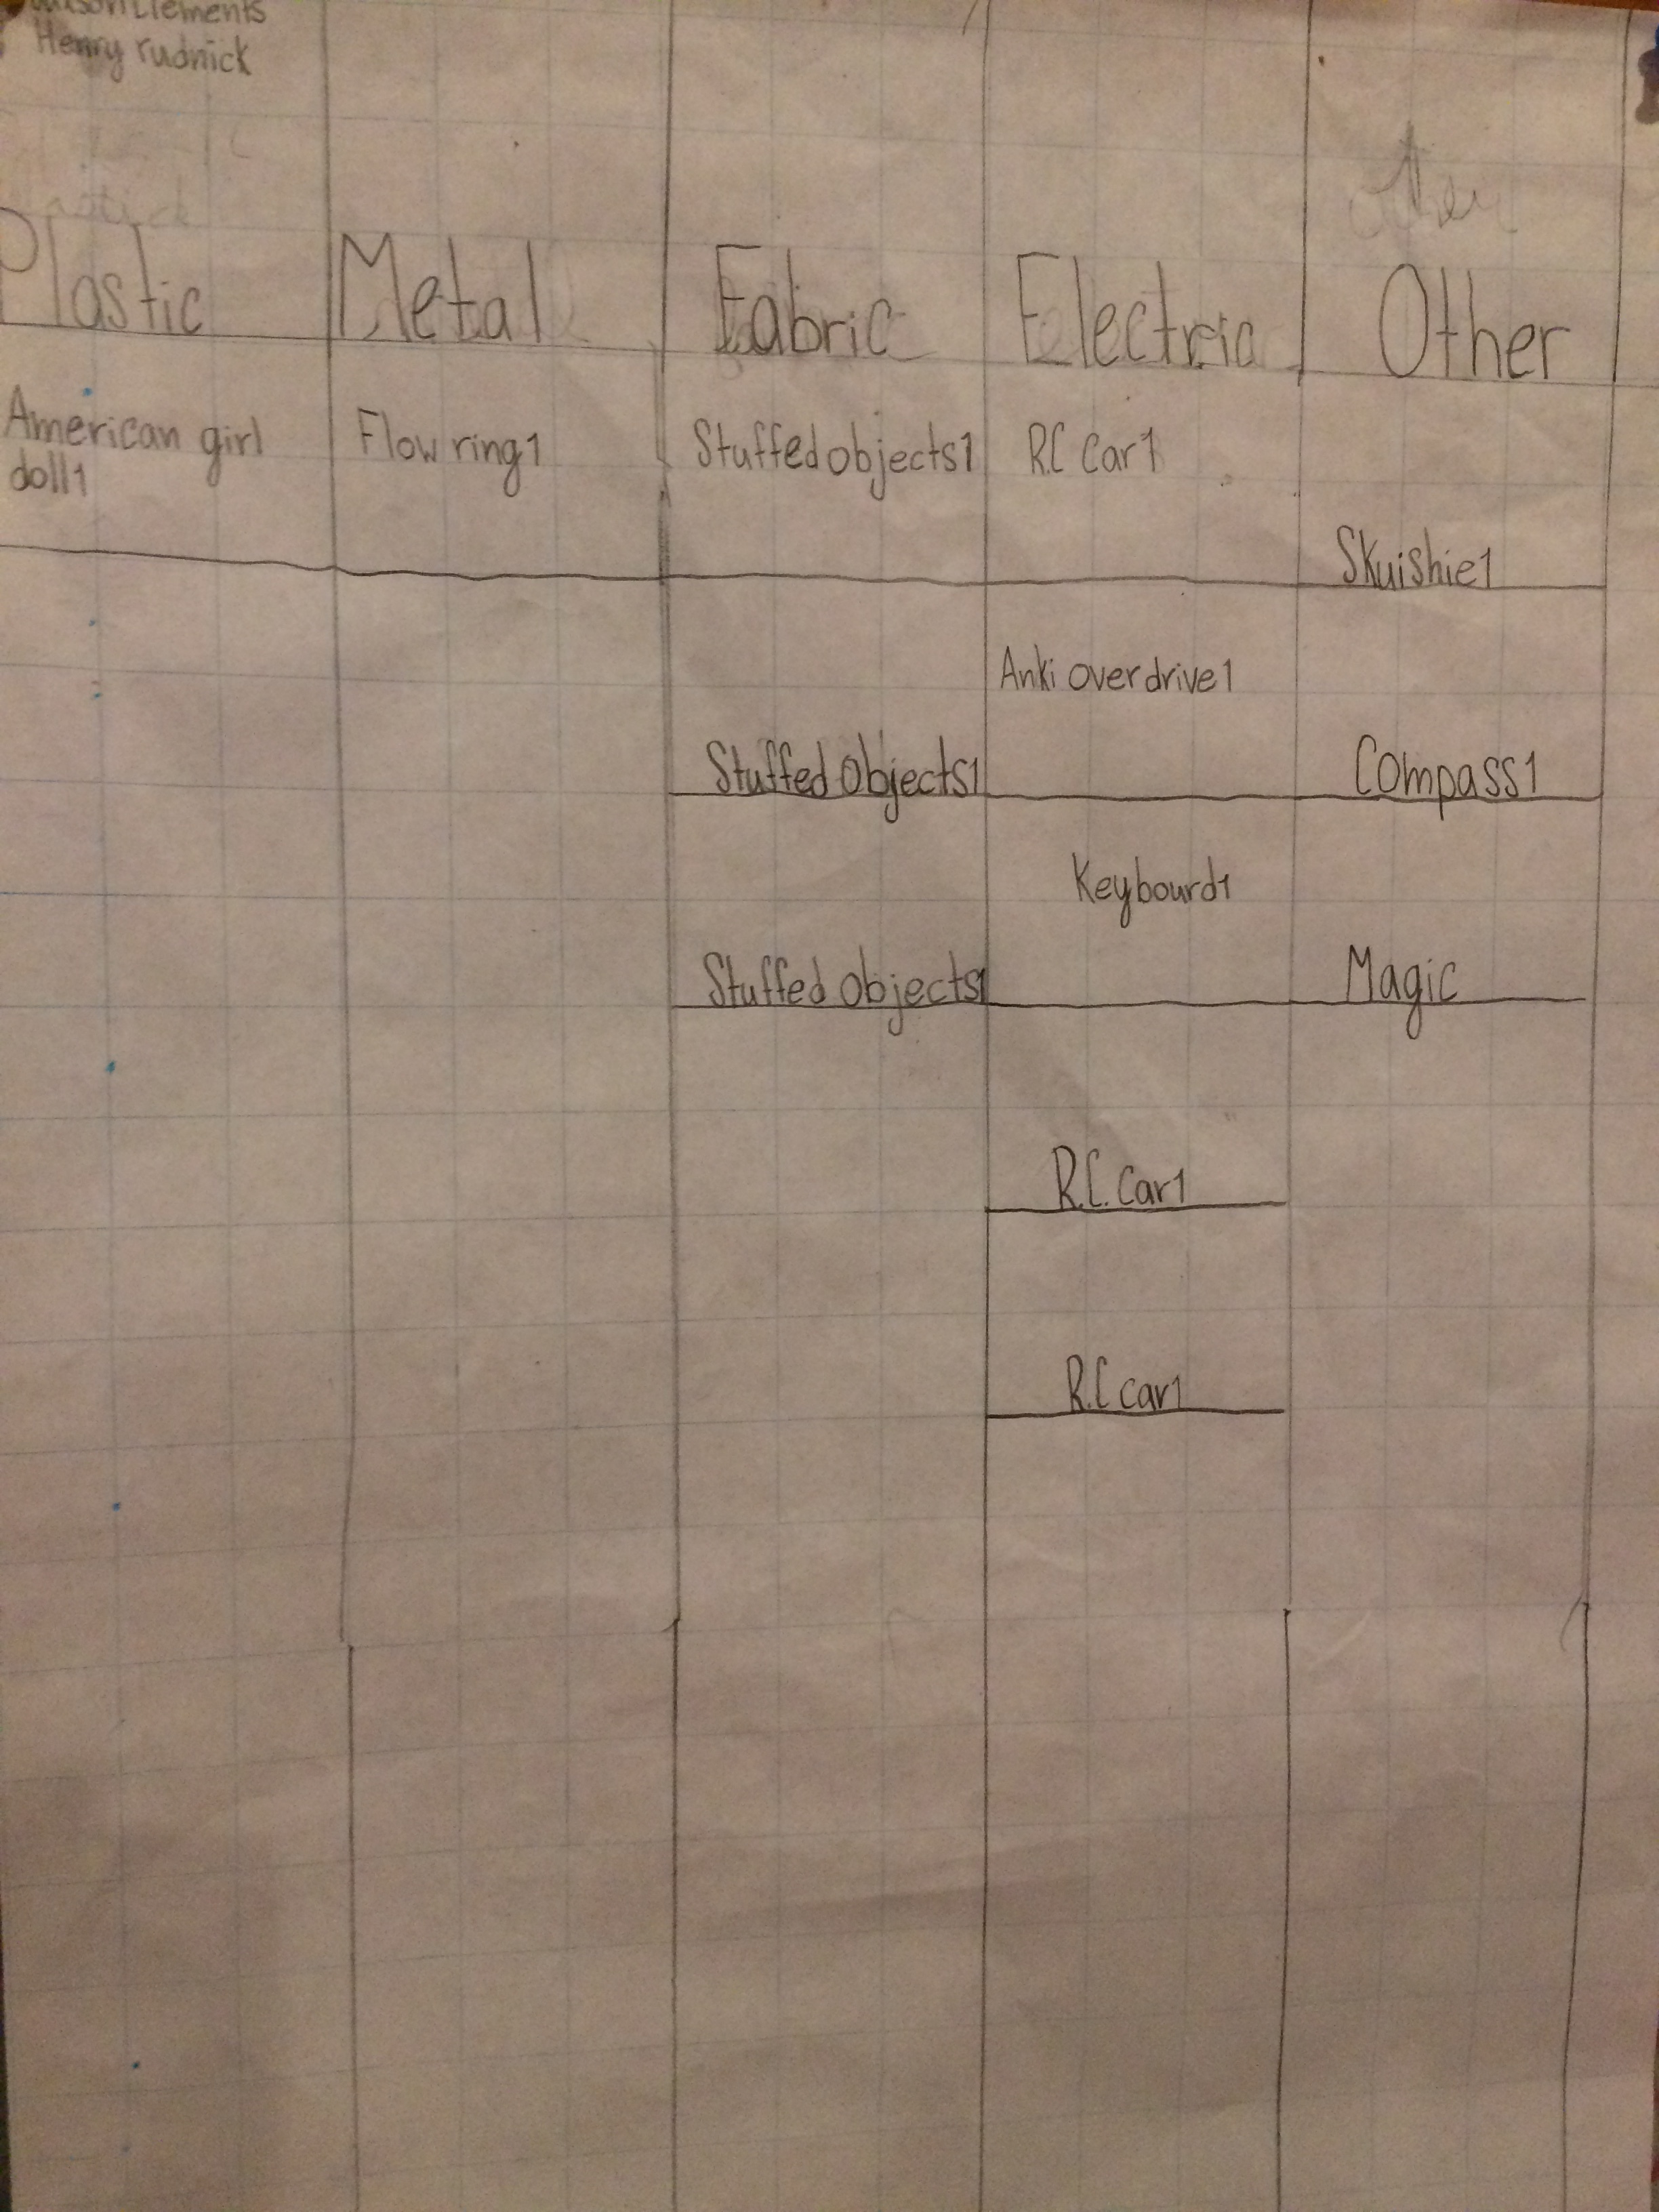 Clements
Henry rudnick
other
Plastic Metal Fabric Electric Other
American girl Flow ring1 Stuffed objects1 R.C Car1
doll1
Skuishie1
Anki overdrive1
Stuffed Objects1 Compass1
Keybourd1
Stuffed Objects1 Magic
R.C. Car1
R.C car1